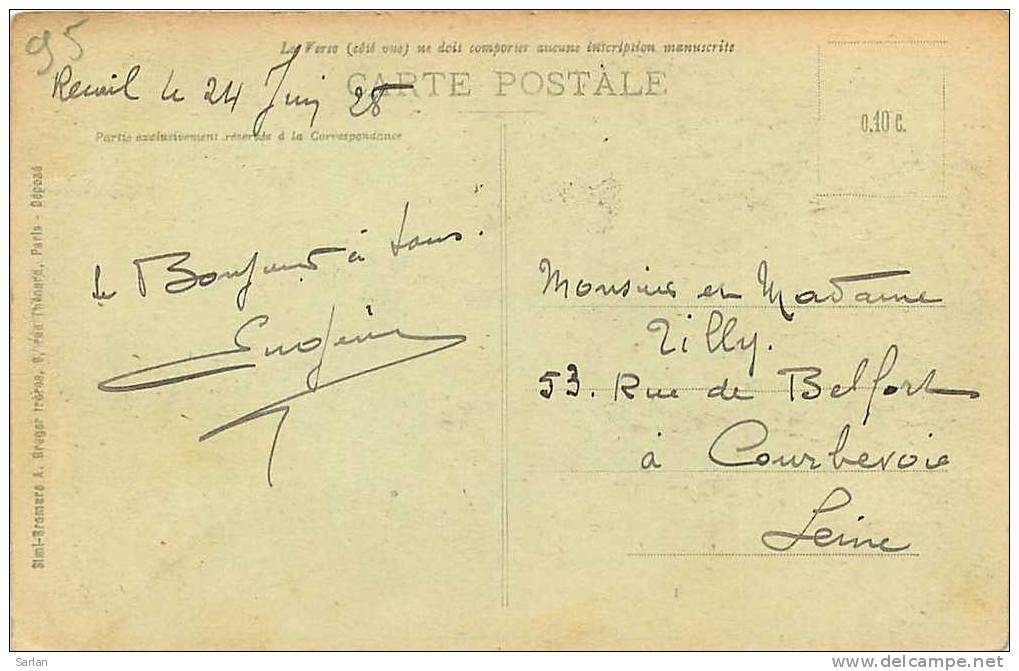 95
Le Verso (côté vue) ne doit comporter aucune inscription manuscrite
CARTE POSTALE
le 24 Juin 28
Partie exclusivement réservée à la Correspondance
0.10 c.
le Bonjour à tous.
Eugénie
Monsieur et Madame
Tilly.
53. Rue de Belfort
à Courbevoie
Seine
Simi-Bromure A. Breger frères, 9, rue Thénard, Paris - Déposé
Sarlan
delcampe.net